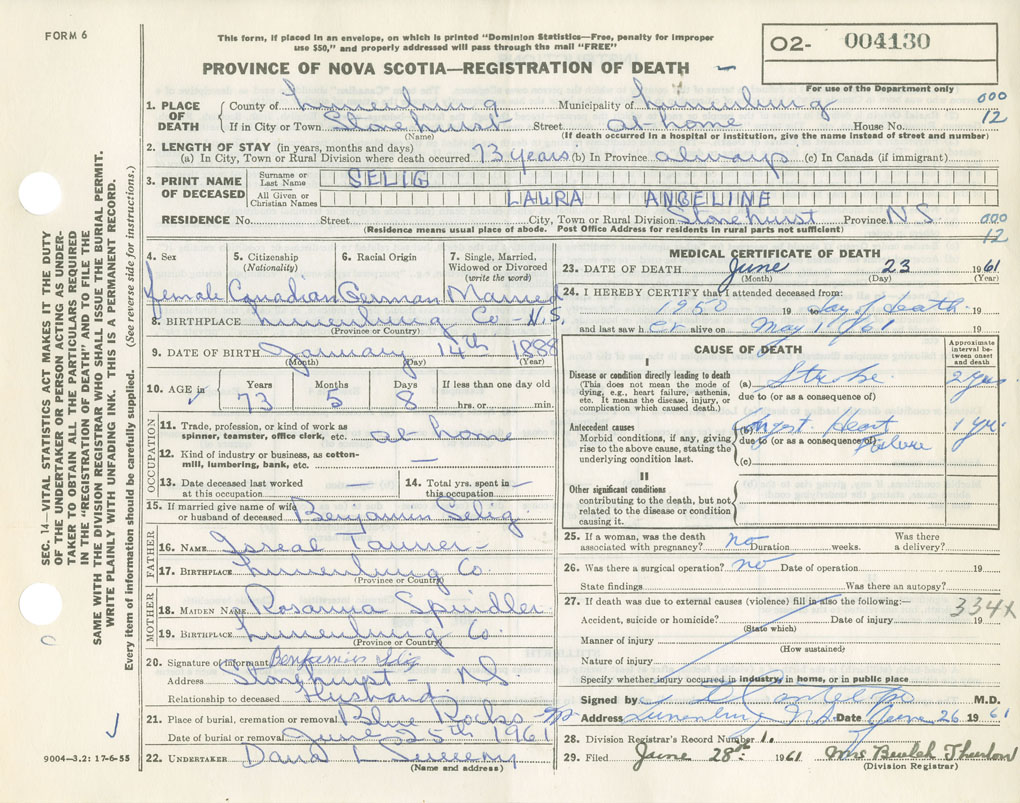 FORM 6
This form, if placed in an envelope, on which is printed "Dominion Statistics—Free, penalty for improper
use $50," and properly addressed will pass through the mail "FREE"
O2- 004130
For use of the Department only
PROVINCE OF NOVA SCOTIA—REGISTRATION OF DEATH
000
12
1. PLACE OF DEATH County of Lunenburg Municipality of Lunenburg
If in City or Town Stonehurst Street at home House No.
(Name) (If death occurred in a hospital or institution, give the name instead of street and number)
2. LENGTH OF STAY (in years, months and days)
(a) In City, Town or Rural Division where death occurred 73 years (b) In Province always (c) In Canada (if immigrant)
3. PRINT NAME OF DECEASED
Surname or Last Name SELIG
All Given or Christian Names LAURA ANGELINE
RESIDENCE No. Street City, Town or Rural Division Stonehurst Province N S
(Residence means usual place of abode. Post Office Address for residents in rural parts not sufficient)
000
12
4. Sex
female
5. Citizenship (Nationality)
Canadian
6. Racial Origin
German
7. Single, Married, Widowed or Divorced (write the word)
Married
8. BIRTHPLACE Lunenburg Co - N.S.
(Province or Country)
9. DATE OF BIRTH January 14th 1888
(Month) (Day) (Year)
10. AGE in Years Months Days If less than one day old
73 5 8 hrs. or min.
OCCUPATION
11. Trade, profession, or kind of work as spinner, teamster, office clerk, etc. at home
12. Kind of industry or business, as cotton-mill, lumbering, bank, etc. —
13. Date deceased last worked at this occupation —
14. Total yrs. spent in this occupation —
15. If married give name of wife or husband of deceased Benjamin Selig
FATHER
16. NAME Isreal Tanner
17. BIRTHPLACE Lunenburg Co
(Province or Country)
MOTHER
18. MAIDEN NAME Rosanna Spindler
19. BIRTHPLACE Lunenburg Co.
(Province or Country)
20. Signature of informant Benjamin Selig
Address Stonehurst - N S.
Relationship to deceased Husband
21. Place of burial, cremation or removal Blue Rocks
Date of burial or removal June 25th 1961
22. UNDERTAKER David L Sweeny
(Name and address)
MEDICAL CERTIFICATE OF DEATH
23. DATE OF DEATH June 23 1961
(Month) (Day) (Year)
24. I HEREBY CERTIFY that I attended deceased from:
1950 19 to day of death 19
and last saw her alive on May 1 / 61 19
CAUSE OF DEATH
Approximate interval between onset and death
I
Disease or condition directly leading to death
(This does not mean the mode of dying, e.g., heart failure, asthenia, etc. It means the disease, injury, or complication which caused death.)
(a) Stroke 2 yrs
due to (or as a consequence of)
Antecedent causes
Morbid conditions, if any, giving rise to the above cause, stating the underlying condition last.
(b) Congest. Heart Failure 1 yr.
due to (or as a consequence of)
(c)
II
Other significant conditions
contributing to the death, but not related to the disease or condition causing it.
25. If a woman, was the death associated with pregnancy? no Duration weeks. Was there a delivery?
26. Was there a surgical operation? no Date of operation 19
State findings Was there an autopsy?
27. If death was due to external causes (violence) fill in also the following:—
334X
Accident, suicide or homicide? Date of injury 19
(State which)
Manner of injury
(How sustained)
Nature of injury
Specify whether injury occurred in industry, in home, or in public place
Signed by M.D.
Address Lunenburg N.S. Date June 26 1961
28. Division Registrar's Record Number 1.
29. Filed June 28th 1961 Mrs Beulah Thurlow
(Division Registrar)
SEC. 14—VITAL STATISTICS ACT MAKES IT THE DUTY
OF THE UNDERTAKER OR PERSON ACTING AS UNDER-
TAKER TO OBTAIN ALL THE PARTICULARS REQUIRED
IN THE "REGISTRATION OF DEATH" AND TO FILE THE
SAME WITH THE DIVISION REGISTRAR WHO SHALL ISSUE THE BURIAL PERMIT.
WRITE PLAINLY WITH UNFADING INK. THIS IS A PERMANENT RECORD.
Every item of information should be carefully supplied. (See reverse side for instructions.)
9004—3.2: 17-6-55